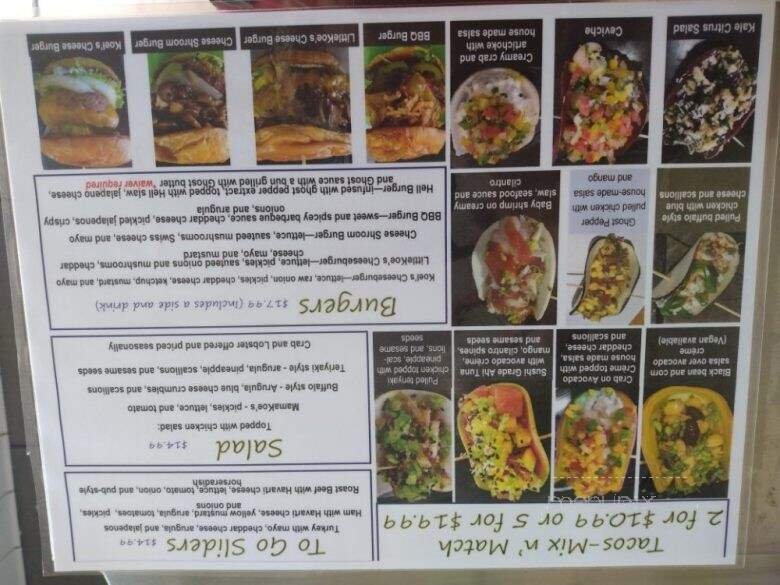 Tacos-Mix n' Match
2 for $10.99 or 5 for $19.99
Black bean and corn
salsa over avocado
crème
(Vegan available)
Crab on Avocado
Crème topped with
house made salsa,
cheddar cheese,
and scallions
Sushi Grade Ahi Tuna
with avocado crème,
mango, cilantro, spices,
and sesame seeds
Pulled teriyaki
chicken topped with
pineapple, scal-
lions, and sesame
seeds
Pulled buffalo style
chicken with blue
cheese and scallions
Ghost Pepper
pulled chicken with
house-made salsa
and mango
Baby shrimp on creamy
slaw, seafood sauce and
cilantro
Kale Citrus Salad
Ceviche
Creamy crab and
artichoke with
house made salsa
To Go Sliders $14.99
Turkey with mayo, cheddar cheese, arugula, and jalapenos
Ham with Havarti cheese, yellow mustard, arugula, tomatoes, pickles,
and onions
Roast Beef with Havarti cheese, lettuce, tomato, onion, and pub-style
horseradish
Salad $14.99
Topped with chicken salad:
MamaKoe's - pickles, lettuce, and tomato
Buffalo style - Arugula, blue cheese crumbles, and scallions
Teriyaki style - arugula, pineapple, scallions, and sesame seeds
Crab and Lobster offered and priced seasonally
Burgers $17.99 (Includes a side and drink)
Koel's Cheeseburger—lettuce, raw onion, pickles, cheddar cheese, ketchup, mustard, and mayo
LittleKoe's Cheeseburger—lettuce, pickles, sauteed onions and mushrooms, cheddar
cheese, mayo, and mustard
Cheese Shroom Burger—lettuce, sauteed mushrooms, Swiss cheese, and mayo
BBQ Burger—sweet and spicy barbeque sauce, cheddar cheese, pickled jalapenos, crispy
onions, and arugula
Hell Burger—infused with ghost pepper extract, topped with Hell slaw, jalapeno cheese,
and Ghost sauce with a bun grilled with Ghost butter *waiver required
BBQ Burger
LittleKoe's Cheese Burger
Cheese Shroom Burger
Koel's Cheese Burger